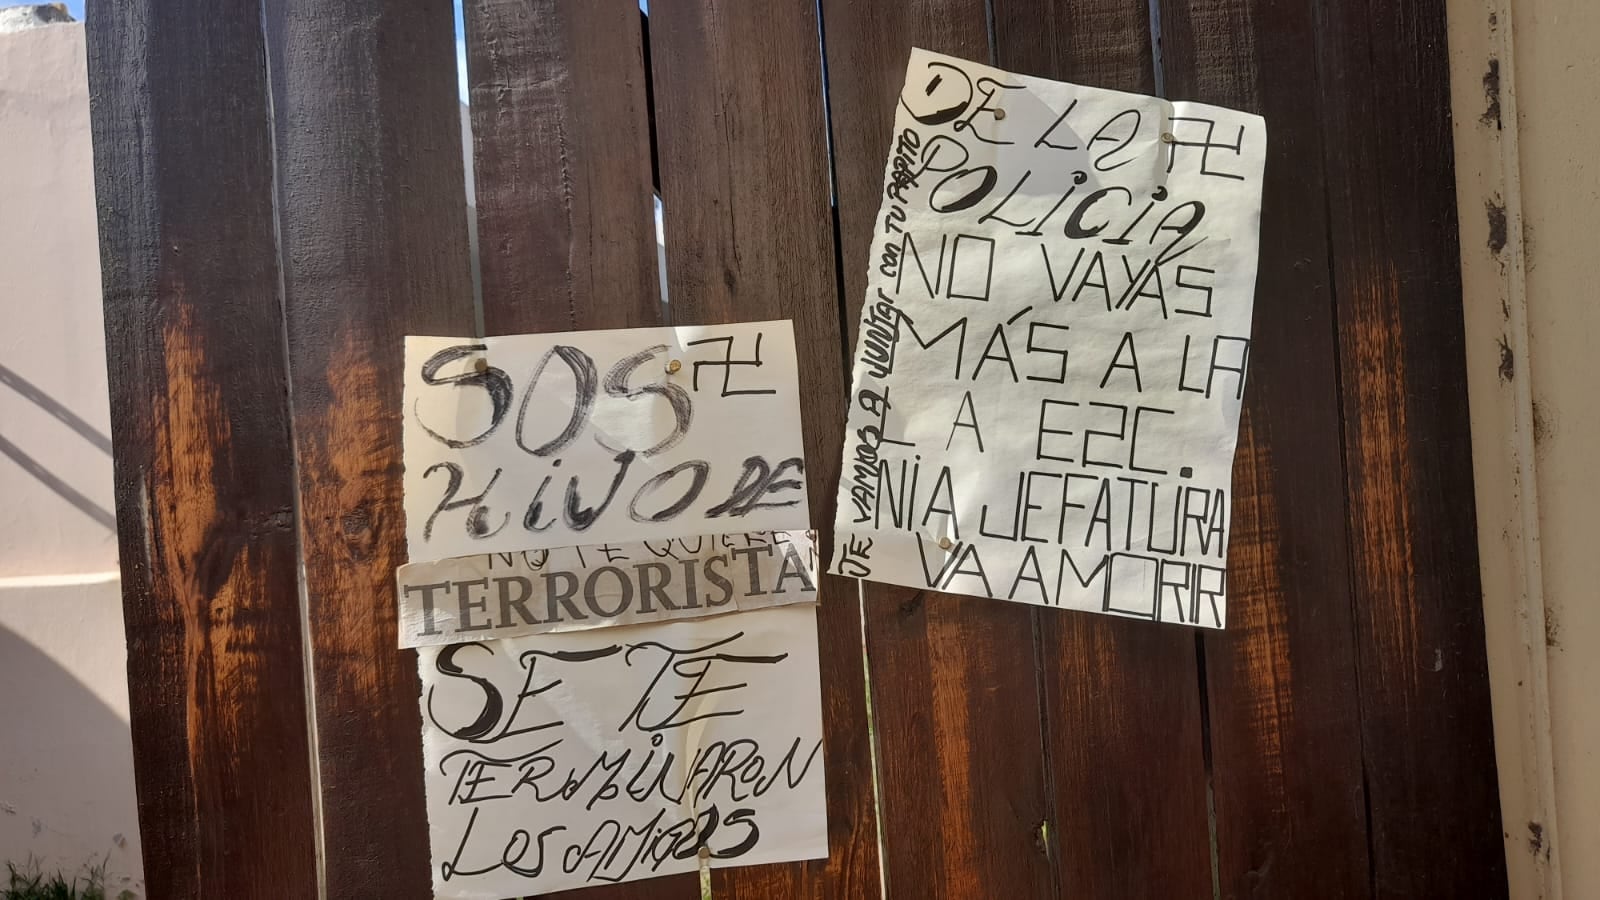 SOS 卍
HIJO DE
NO TE QUIERE
TERRORISTA
SE TE
TERMINARON
LOS AMIGOS
DE LA 卍
POLICIA
NO VAYAS
MÁS A LA
A E2C.
NI A JEFATURA
VA A MORIR
TE VAMOS A JUNTAR CON TU PAPITO